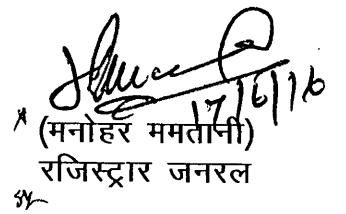 17/6/16
(मनोहर ममतानी)
रजिस्ट्रार जनरल